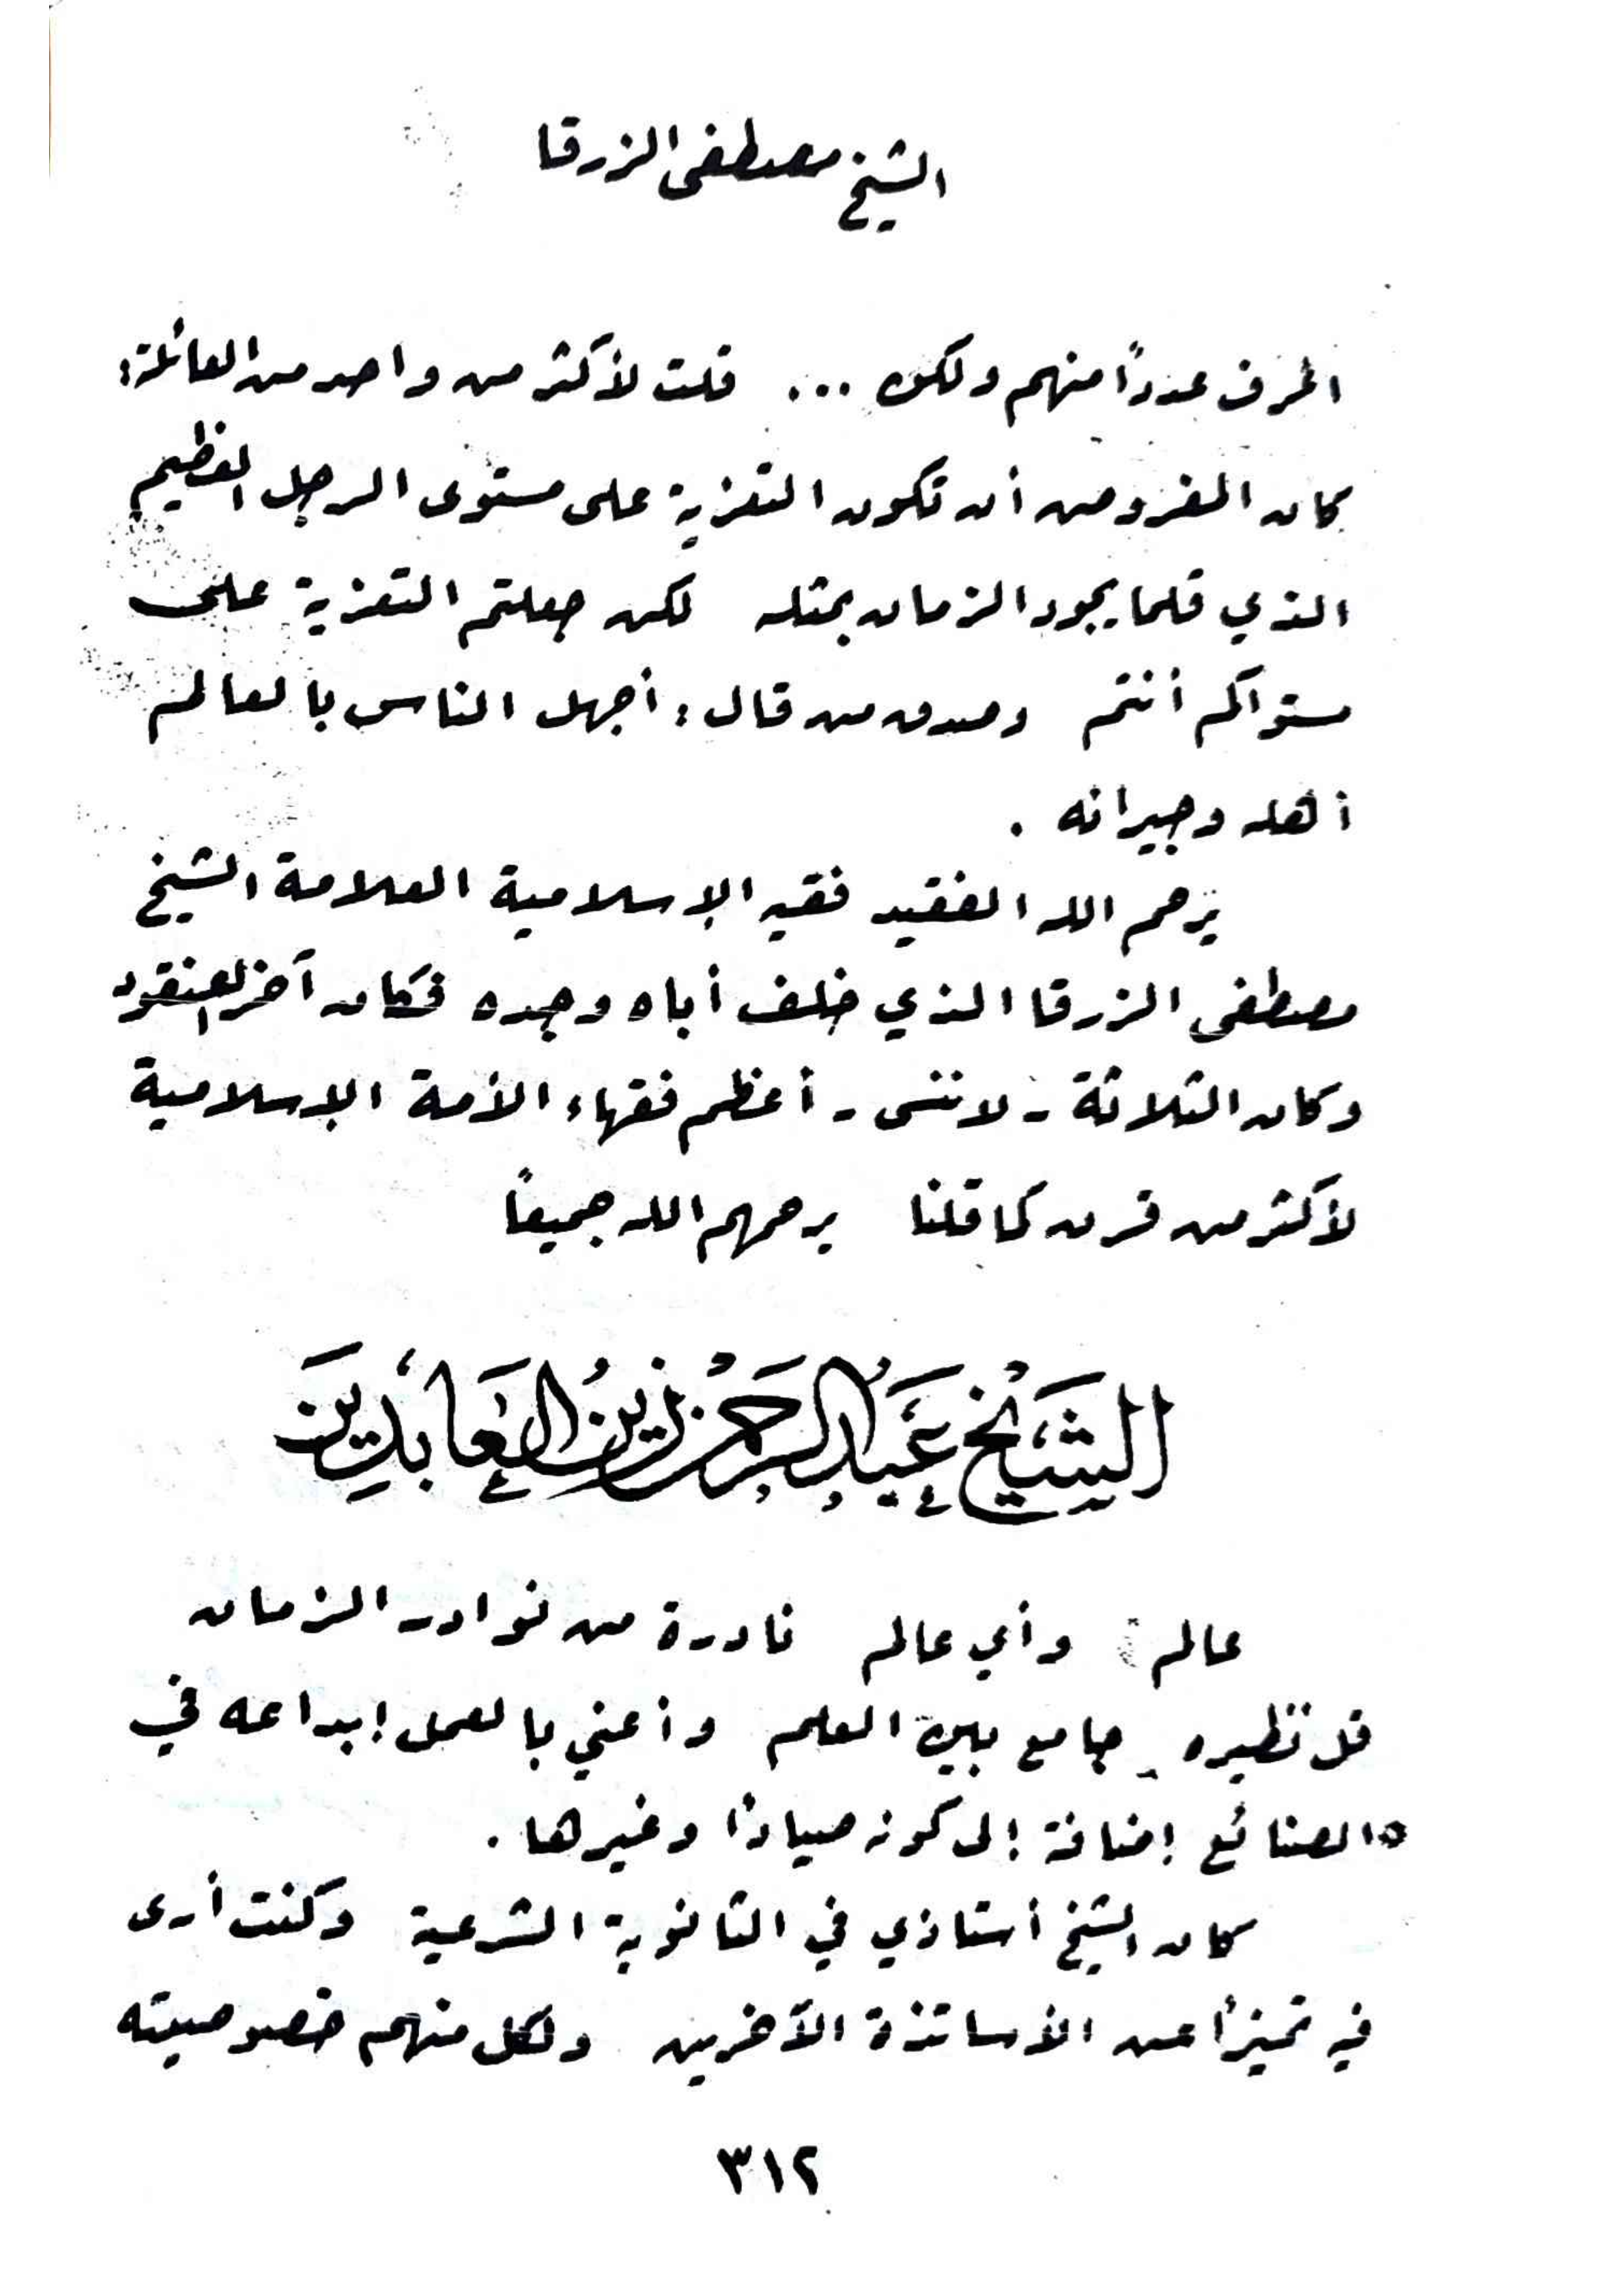 الشيخ مصطفى الزرقا
اعرف عدداً منهم ولكن ... قلت لأكثر من واحد من العائلة:
كان المفروض أن تكون التعزية على مستوى الرجل العظيم
الذي قلما يجود الزمان بمثله لكن جعلتم التعزية على
مستواكم أنتم وصدق من قال: أجهل الناس بالعالم
أهله وجيرانه .
يرحم الله الفقيد فقيه الإسلامية العلامة الشيخ
مصطفى الزرقا الذي خلف أباه وجده فكان آخر العنقود
وكان الثلاثة - لا ننسى - أعظم فقهاء الأمة الإسلامية
لأكثر من قرن كما قلنا يرحمهم الله جميعاً
الشَيْخ عَبْدُ الرَحْمن زينُ العَابِدِيَن
عالم وأي عالم نادرة من نوادر الزمان
قل نظيره جامع بين العلم وأعني بالعمل إبداعه في
الصنائع إضافة إلى كونه صياداً وغيرها .
كان الشيخ أستاذي في الثانوية الشرعية وكنت أرى
فيه تميزاً عن الأساتذة الآخرين ولكل منهم خصوصيته
٣١٢